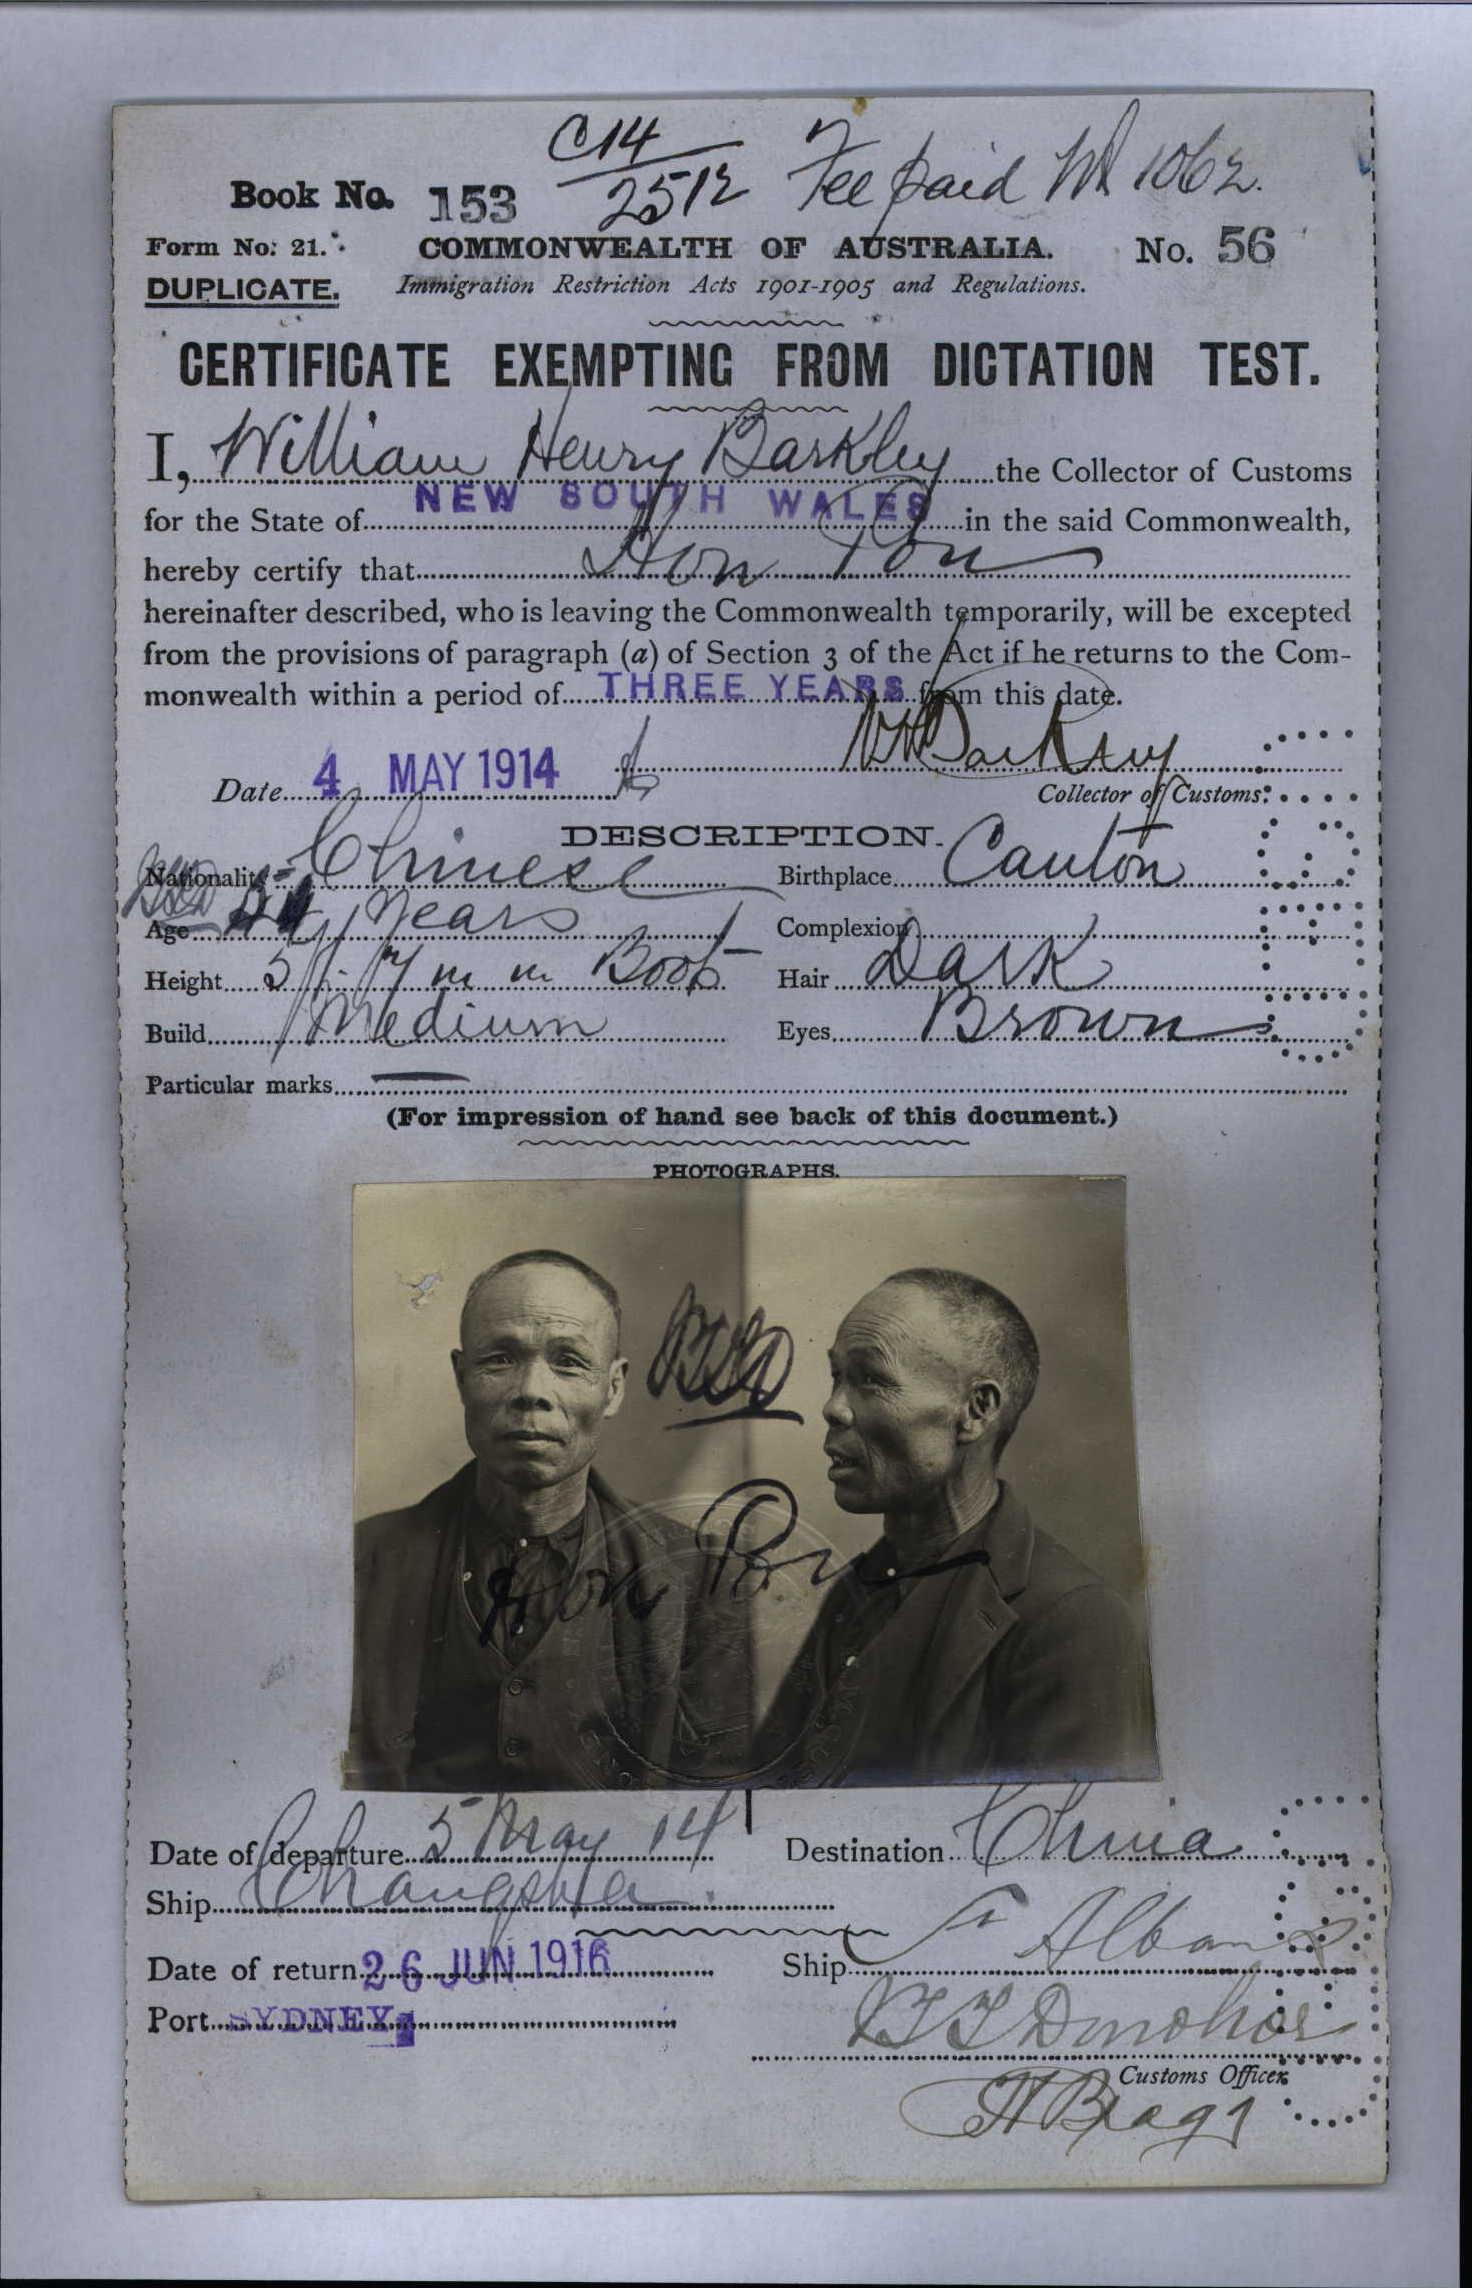 C14/2512 Fee paid 1062.
Book No. 153
Form No: 21. COMMONWEALTH OF AUSTRALIA. No. 56
DUPLICATE. Immigration Restriction Acts 1901-1905 and Regulations.
CERTIFICATE EXEMPTING FROM DICTATION TEST.
I, William Henry Barkley the Collector of Customs
for the State of NEW SOUTH WALES in the said Commonwealth,
hereby certify that Hon Pon
hereinafter described, who is leaving the Commonwealth temporarily, will be excepted
from the provisions of paragraph (a) of Section 3 of the Act if he returns to the Com-
monwealth within a period of THREE YEARS from this date.
WH Barkley
Date 4 MAY 1914
Collector of Customs.
DESCRIPTION.
Nationality Chinese Birthplace Canton
Age Years Complexion
Height 5 ft. 7 in in Boots Hair Dark
Build Medium Eyes Brown
Particular marks —
(For impression of hand see back of this document.)
PHOTOGRAPHS.
Hon Pon
Date of departure 5 May 14 Destination China
Ship Changsha
Date of return 26 JUN 1916 Ship St Albans
Port SYDNEY
Donohoe
Customs Officer.
Bragg